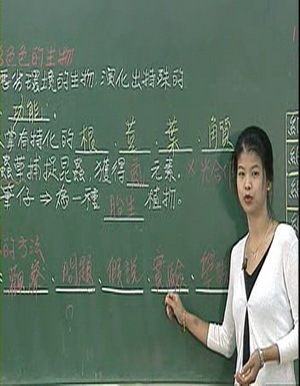 色色的生物
惡劣環境的生物 演化出特殊的
功能.
掌有特化的 根. 莖. 葉. 角質
蟲草捕捉昆蟲 獲得 氮 元素. ×光合
筆仔 ⇒ 為一種 胎生 植物。
的方法
觀察. 問題. 假說. 實驗.